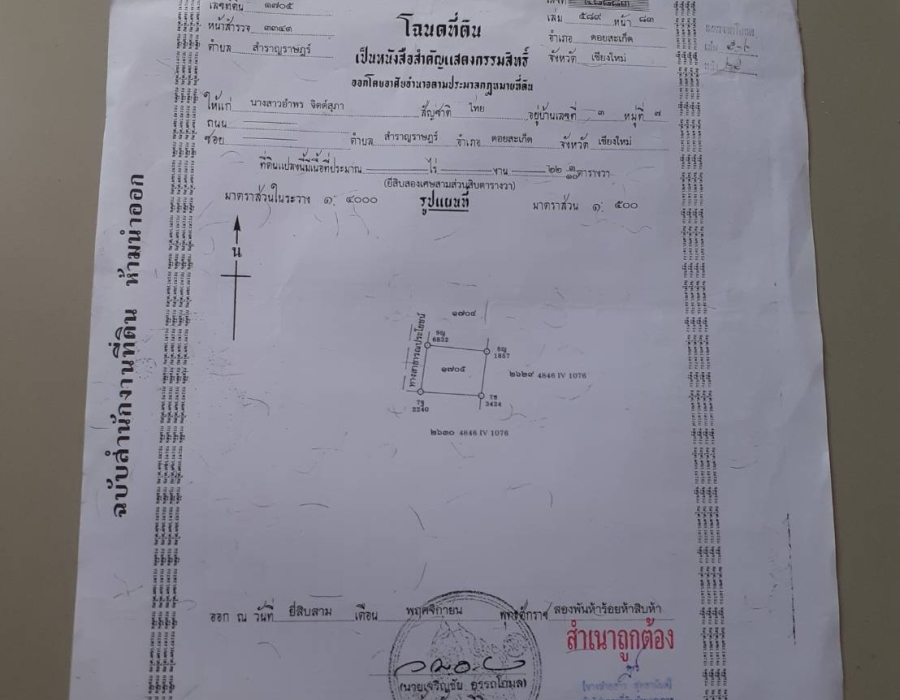 เลขที่ดิน ๑๗๐๕
หน้าสำรวจ ๓๓๔๓
ตำบล สำราญราษฎร์
โฉนดที่ดิน
เป็นหนังสือสำคัญแสดงกรรมสิทธิ์
ออกโดยอาศัยอำนาจตามประมวลกฎหมายที่ดิน
เล่ม ๕๘๙ หน้า ๘๓
อำเภอ ดอยสะเก็ด
จังหวัด เชียงใหม่
ให้แก่ นางสาวอำพร จิตต์สุภา สัญชาติ ไทย อยู่บ้านเลขที่ ๓ หมู่ที่ ๗
ถนน
ซอย ตำบล สำราญราษฎร์ อำเภอ ดอยสะเก็ด จังหวัด เชียงใหม่
ที่ดินแปลงนี้มีเนื้อที่ประมาณ ไร่ งาน ๒๒ ๓/๑๐ ตารางวา
(ยี่สิบสองเศษสามส่วนสิบตารางวา)
มาตราส่วนในระวาง ๑: ๔๐๐๐ รูปแผนที่ มาตราส่วน ๑: ๕๐๐
น
๑๗๐๔
6832
1857
ทางสาธารณประโยชน์
๑๗๐๕
๒๖๒๙ 4846 IV 1076
2240
3424
๒๖๓๐ 4846 IV 1076
ฉบับสำนักงานที่ดิน ห้ามนำออก
ออก ณ วันที่ ยี่สิบสาม เดือน พฤศจิกายน พุทธศักราช สองพันห้าร้อยห้าสิบห้า
สำเนาถูกต้อง